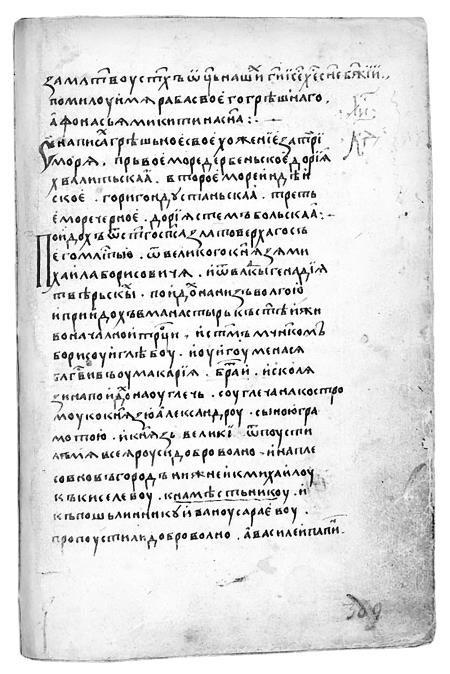 замл҃твоустх҃ъѡц҃ьнашⷯи г҃иіс҃ех҃есн҃ебж҃їй
помилоуймѧрабасвоегогрѣшнаго,
афонасьѧмикитинасн҃а:
написагрѣшьноесвоехоженїезатри
морѧ. првоеморедербеньскоедорїа
хвалитьскаа. второеⷨореиндѣи
ское. горигондустаньскаа. треть
еморечерное. дорїѧстембольскаа:
поидохъѿст҃госп҃сазл҃товерхагосъ
егомлⷭтїю, ѿвеликогокн҃зѧми
хайлаборисовичѧ. иѿвлⷣкыгенадїа
твѣрьскⷢы. поидⷯонанизъволгою
ипрїидохъвманастырькъст҃ѣйжи
воначалнойтрⷪци. ист҃ымъмч҃нкомъ
борисоуиглѣбоу. иоуигоуменасѧ
блг҃вивъоумакарїа. братⷮьи. исколѧ
зинапоидⷯонаоуглечь. соуглечанакостро
моукокн҃зюалександроу. сыноюгра
мотою. икн҃зь великї ѿпоусти
мѧвсеѧроусидоброволно. инапле
совновъгородънижнейкмихайлоу
къкиселевоу. кнамѣстьникоу. и
къпошьлинникуйваноусараевоу.
пропоустилидоброволно. авасилейпапи
389